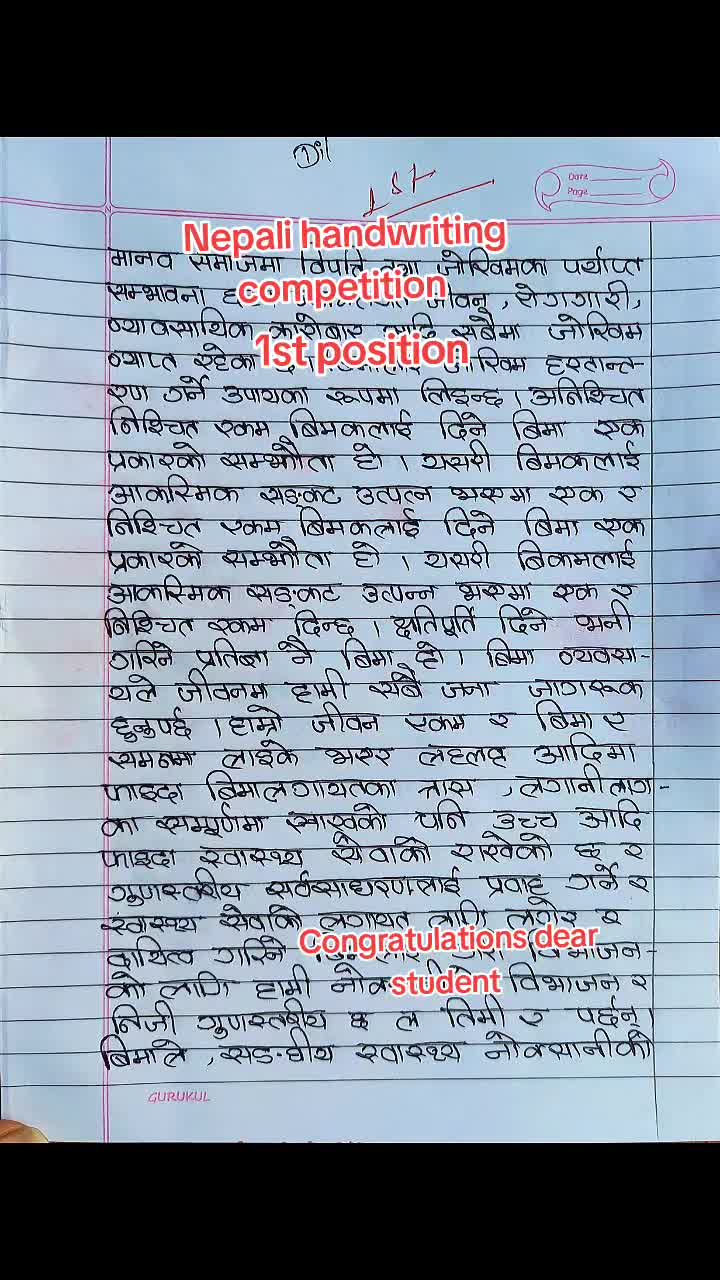 Dil
1st
Date
Page
Nepali handwriting
competition
1st position
मानव समाजमा विपत्ति तथा जोखिमका पर्याप्त
सम्भावना जीवन, रोगगारी,
व्यावसायिक कारोबार आदि सबैमा जोखिम
व्याप्त रहेका जोखिम हस्तान्त-
रण गर्ने उपायका रूपमा लिइन्छ । अनिश्चित
निश्चित रकम बिमकलाई दिने बिमा एक
प्रकारको सम्झौता हो । यसरी बिमकलाई
आकस्मिक सङ्कट उत्पन्न भएमा एक र
निश्चित रकम बिमकलाई दिने बिमा एक
प्रकारको सम्झौता हो । यसरी बिकमलाई
आकस्मिक सङ्कट उत्पन्न भएमा एक र
निश्चित रकम दिन्छ । क्षतिपूर्ति दिने भनी
गरिने प्रतिज्ञा नै बिमा हो । बिमा व्यवसा-
यले जीवनमा हामी सबै जना जागरूक
हुनुपर्छ । हाम्रो जीवन रकम र बिमा र
लाईके भएर आदिमा
फाइदा बिमालगायतका त्रास , लगानी लाग-
का सम्पूर्णमा साखको पनि उच्च आदि
फाइदा स्वास्थ्य सेवाको राखेको छ र
गुणस्तरीय सर्वसाधरणलाई प्रवाह गर्ने र
स्वास्थ्य सेवाको लगायत लागि लगेर र
दायित्व गरिने विभाजन-
को लागि हामी विभाजन र
निजी गुणस्तरीय छ ल तिमी र पर्छन् ।
बिमाले , सङ्घीय स्वास्थ्य नोक्सानीको
Congratulations dear
student
GURUKUL